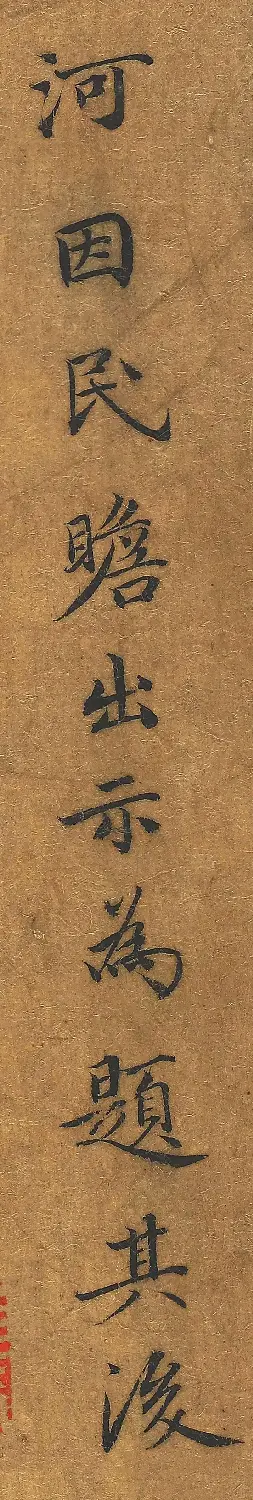 河因民瞻出示為題其後